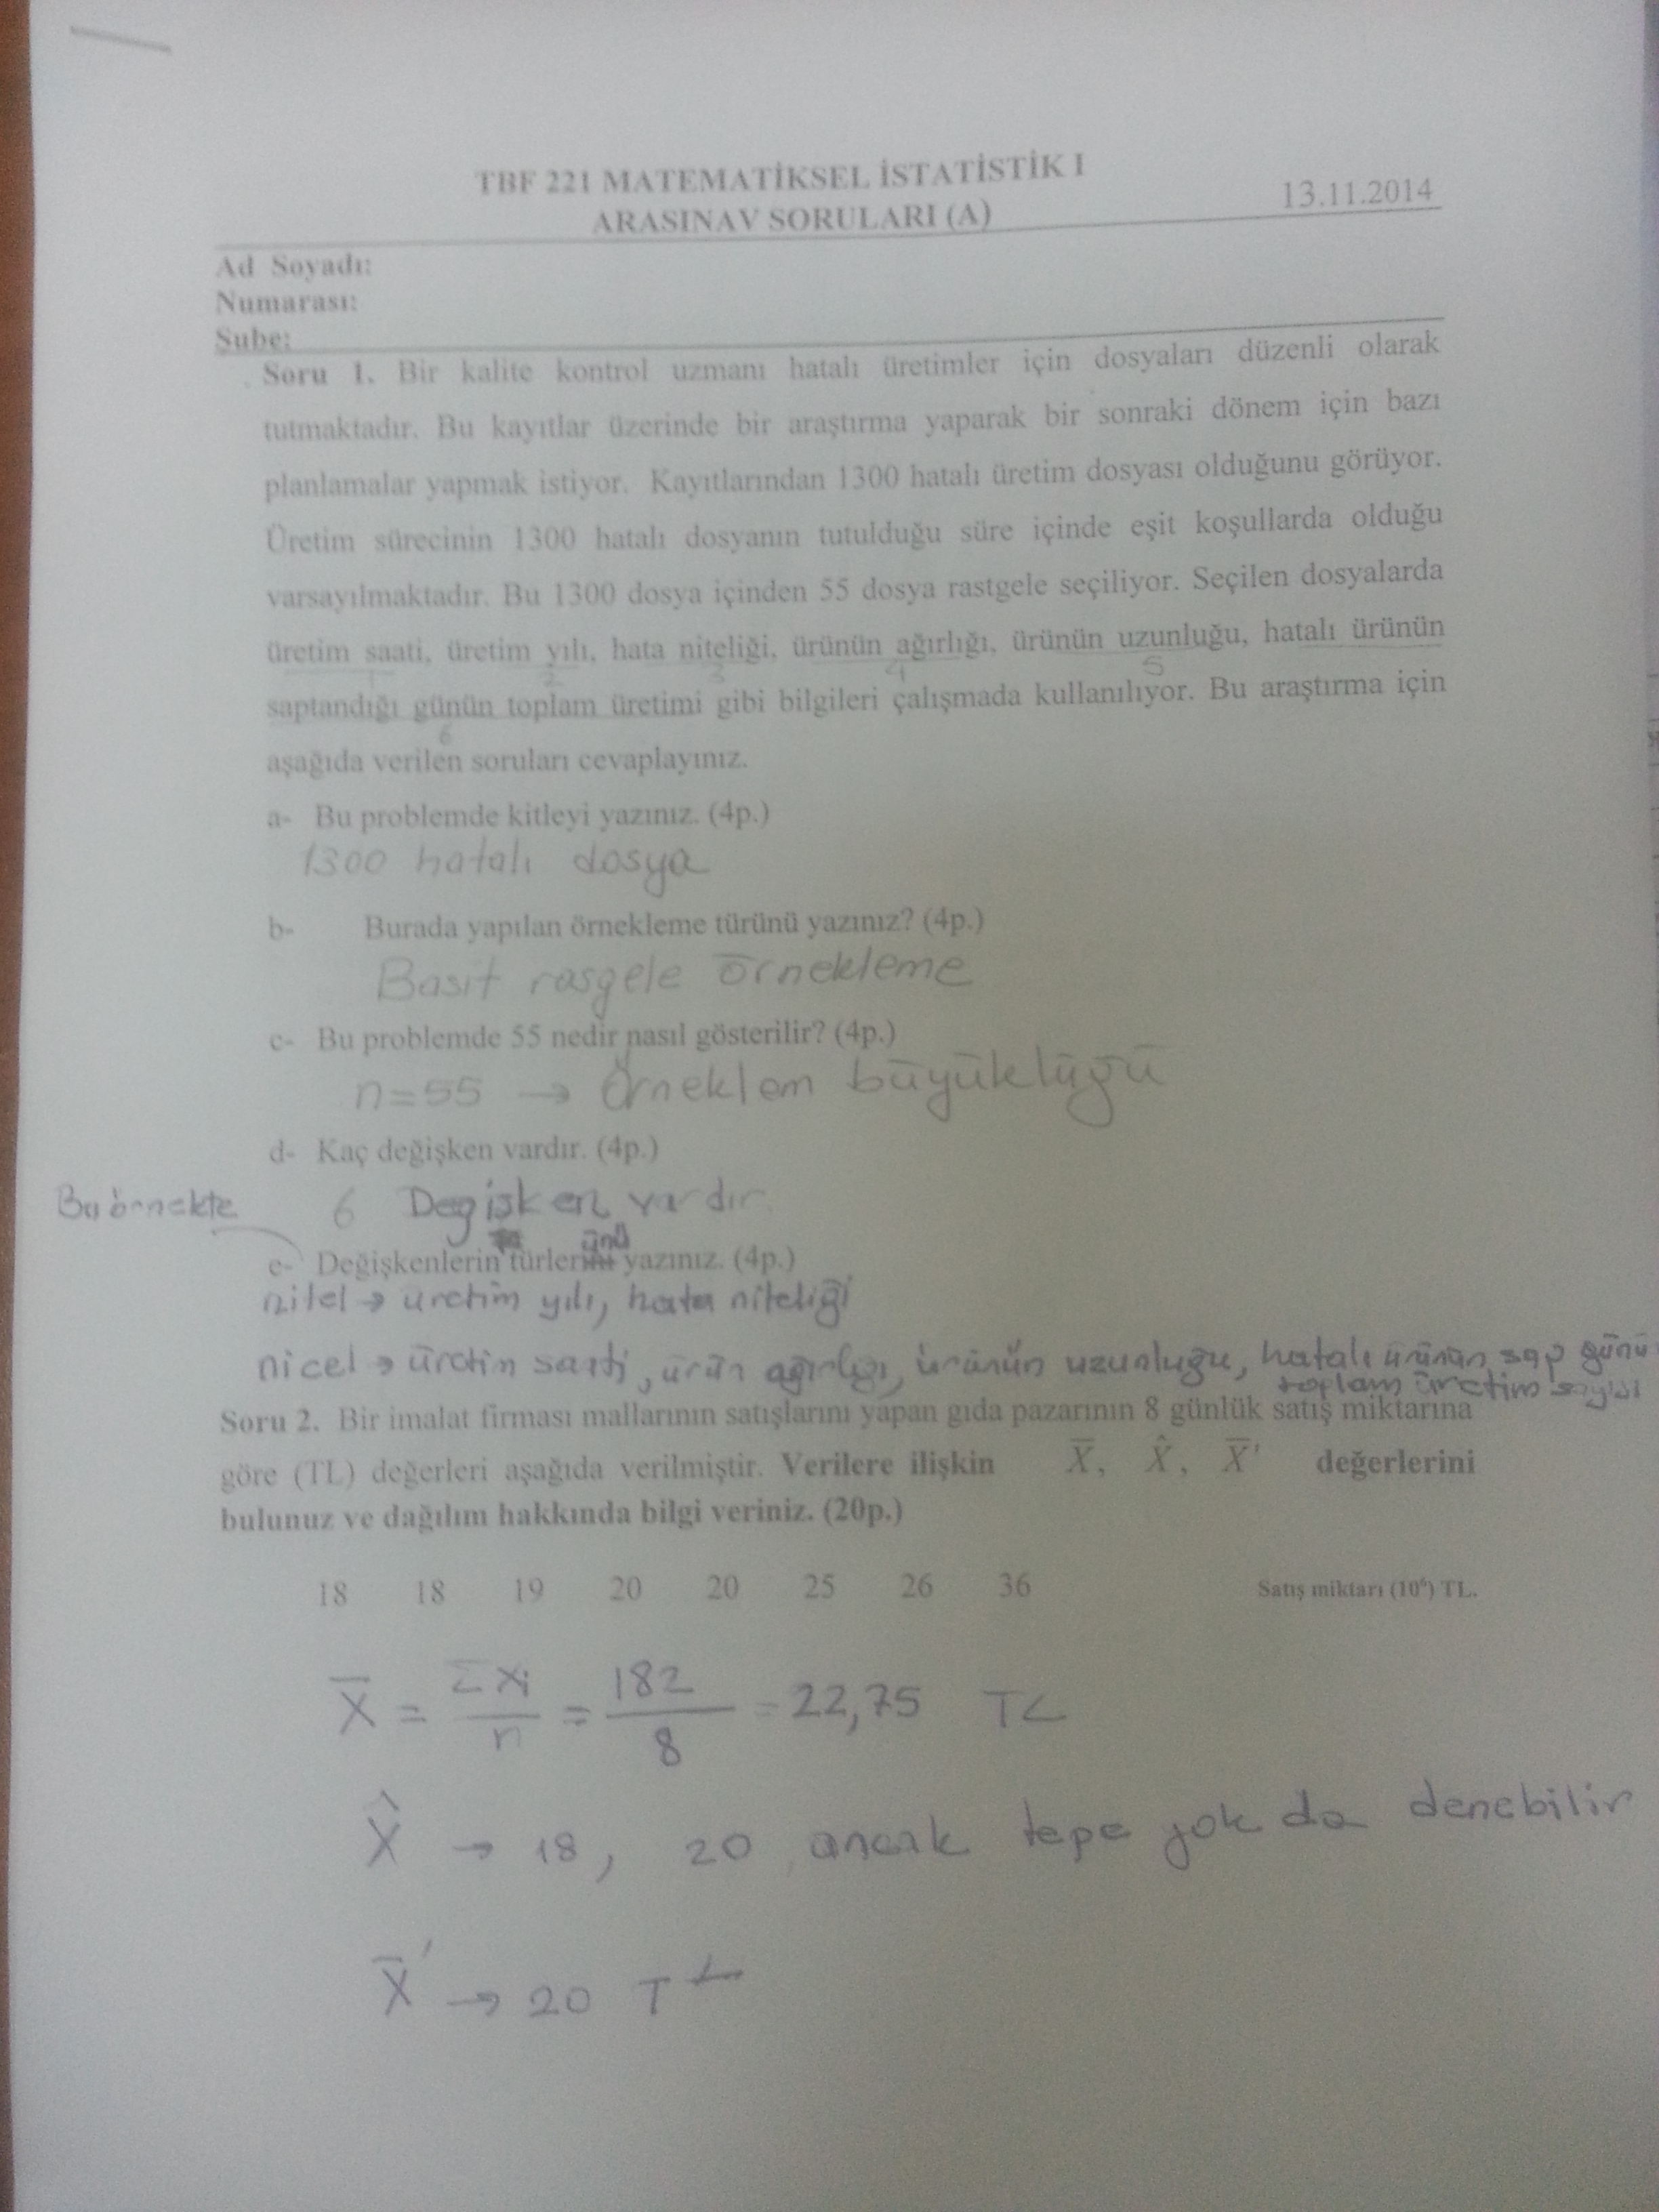 TBF 221 MATEMATİKSEL İSTATİSTİK I
ARASINAV SORULARI (A)
13.11.2014
Ad Soyadı:
Numarası:
Şube:
Soru 1. Bir kalite kontrol uzmanı hatalı üretimler için dosyaları düzenli olarak
tutmaktadır. Bu kayıtlar üzerinde bir araştırma yaparak bir sonraki dönem için bazı
planlamalar yapmak istiyor. Kayıtlarından 1300 hatalı üretim dosyası olduğunu görüyor.
Üretim sürecinin 1300 hatalı dosyanın tutulduğu süre içinde eşit koşullarda olduğu
varsayılmaktadır. Bu 1300 dosya içinden 55 dosya rastgele seçiliyor. Seçilen dosyalarda
üretim saati, üretim yılı, hata niteliği, ürünün ağırlığı, ürünün uzunluğu, hatalı ürünün
1 2 3 4 5
saptandığı günün toplam üretimi gibi bilgileri çalışmada kullanılıyor. Bu araştırma için
6
aşağıda verilen soruları cevaplayınız.
a- Bu problemde kitleyi yazınız. (4p.)
1300 hatalı dosya
b- Burada yapılan örnekleme türünü yazınız? (4p.)
Basit rasgele örnekleme
c- Bu problemde 55 nedir nasıl gösterilir? (4p.)
n=55 → Örneklem büyüklüğü
d- Kaç değişken vardır. (4p.)
Bu örnekte 6 Değişken vardır.
ünü
e- Değişkenlerin türlerini yazınız. (4p.)
nitel → üretim yılı, hata niteliği
nicel → üretim saati, ürün ağırlığı, ürünün uzunluğu, hatalı ürünün sap günü
toplam üretim sayısı
Soru 2. Bir imalat firması mallarının satışlarını yapan gıda pazarının 8 günlük satış miktarına
göre (TL) değerleri aşağıda verilmiştir. Verilere ilişkin X̄, X̂, X̄' değerlerini
bulunuz ve dağılım hakkında bilgi veriniz. (20p.)
18 18 19 20 20 25 26 36 Satış miktarı (10⁶) TL.
X̄ = Σxi/n = 182/8 = 22,75 TL
X̂ → 18, 20 ancak tepe yok da denebilir
X̄' → 20 TL